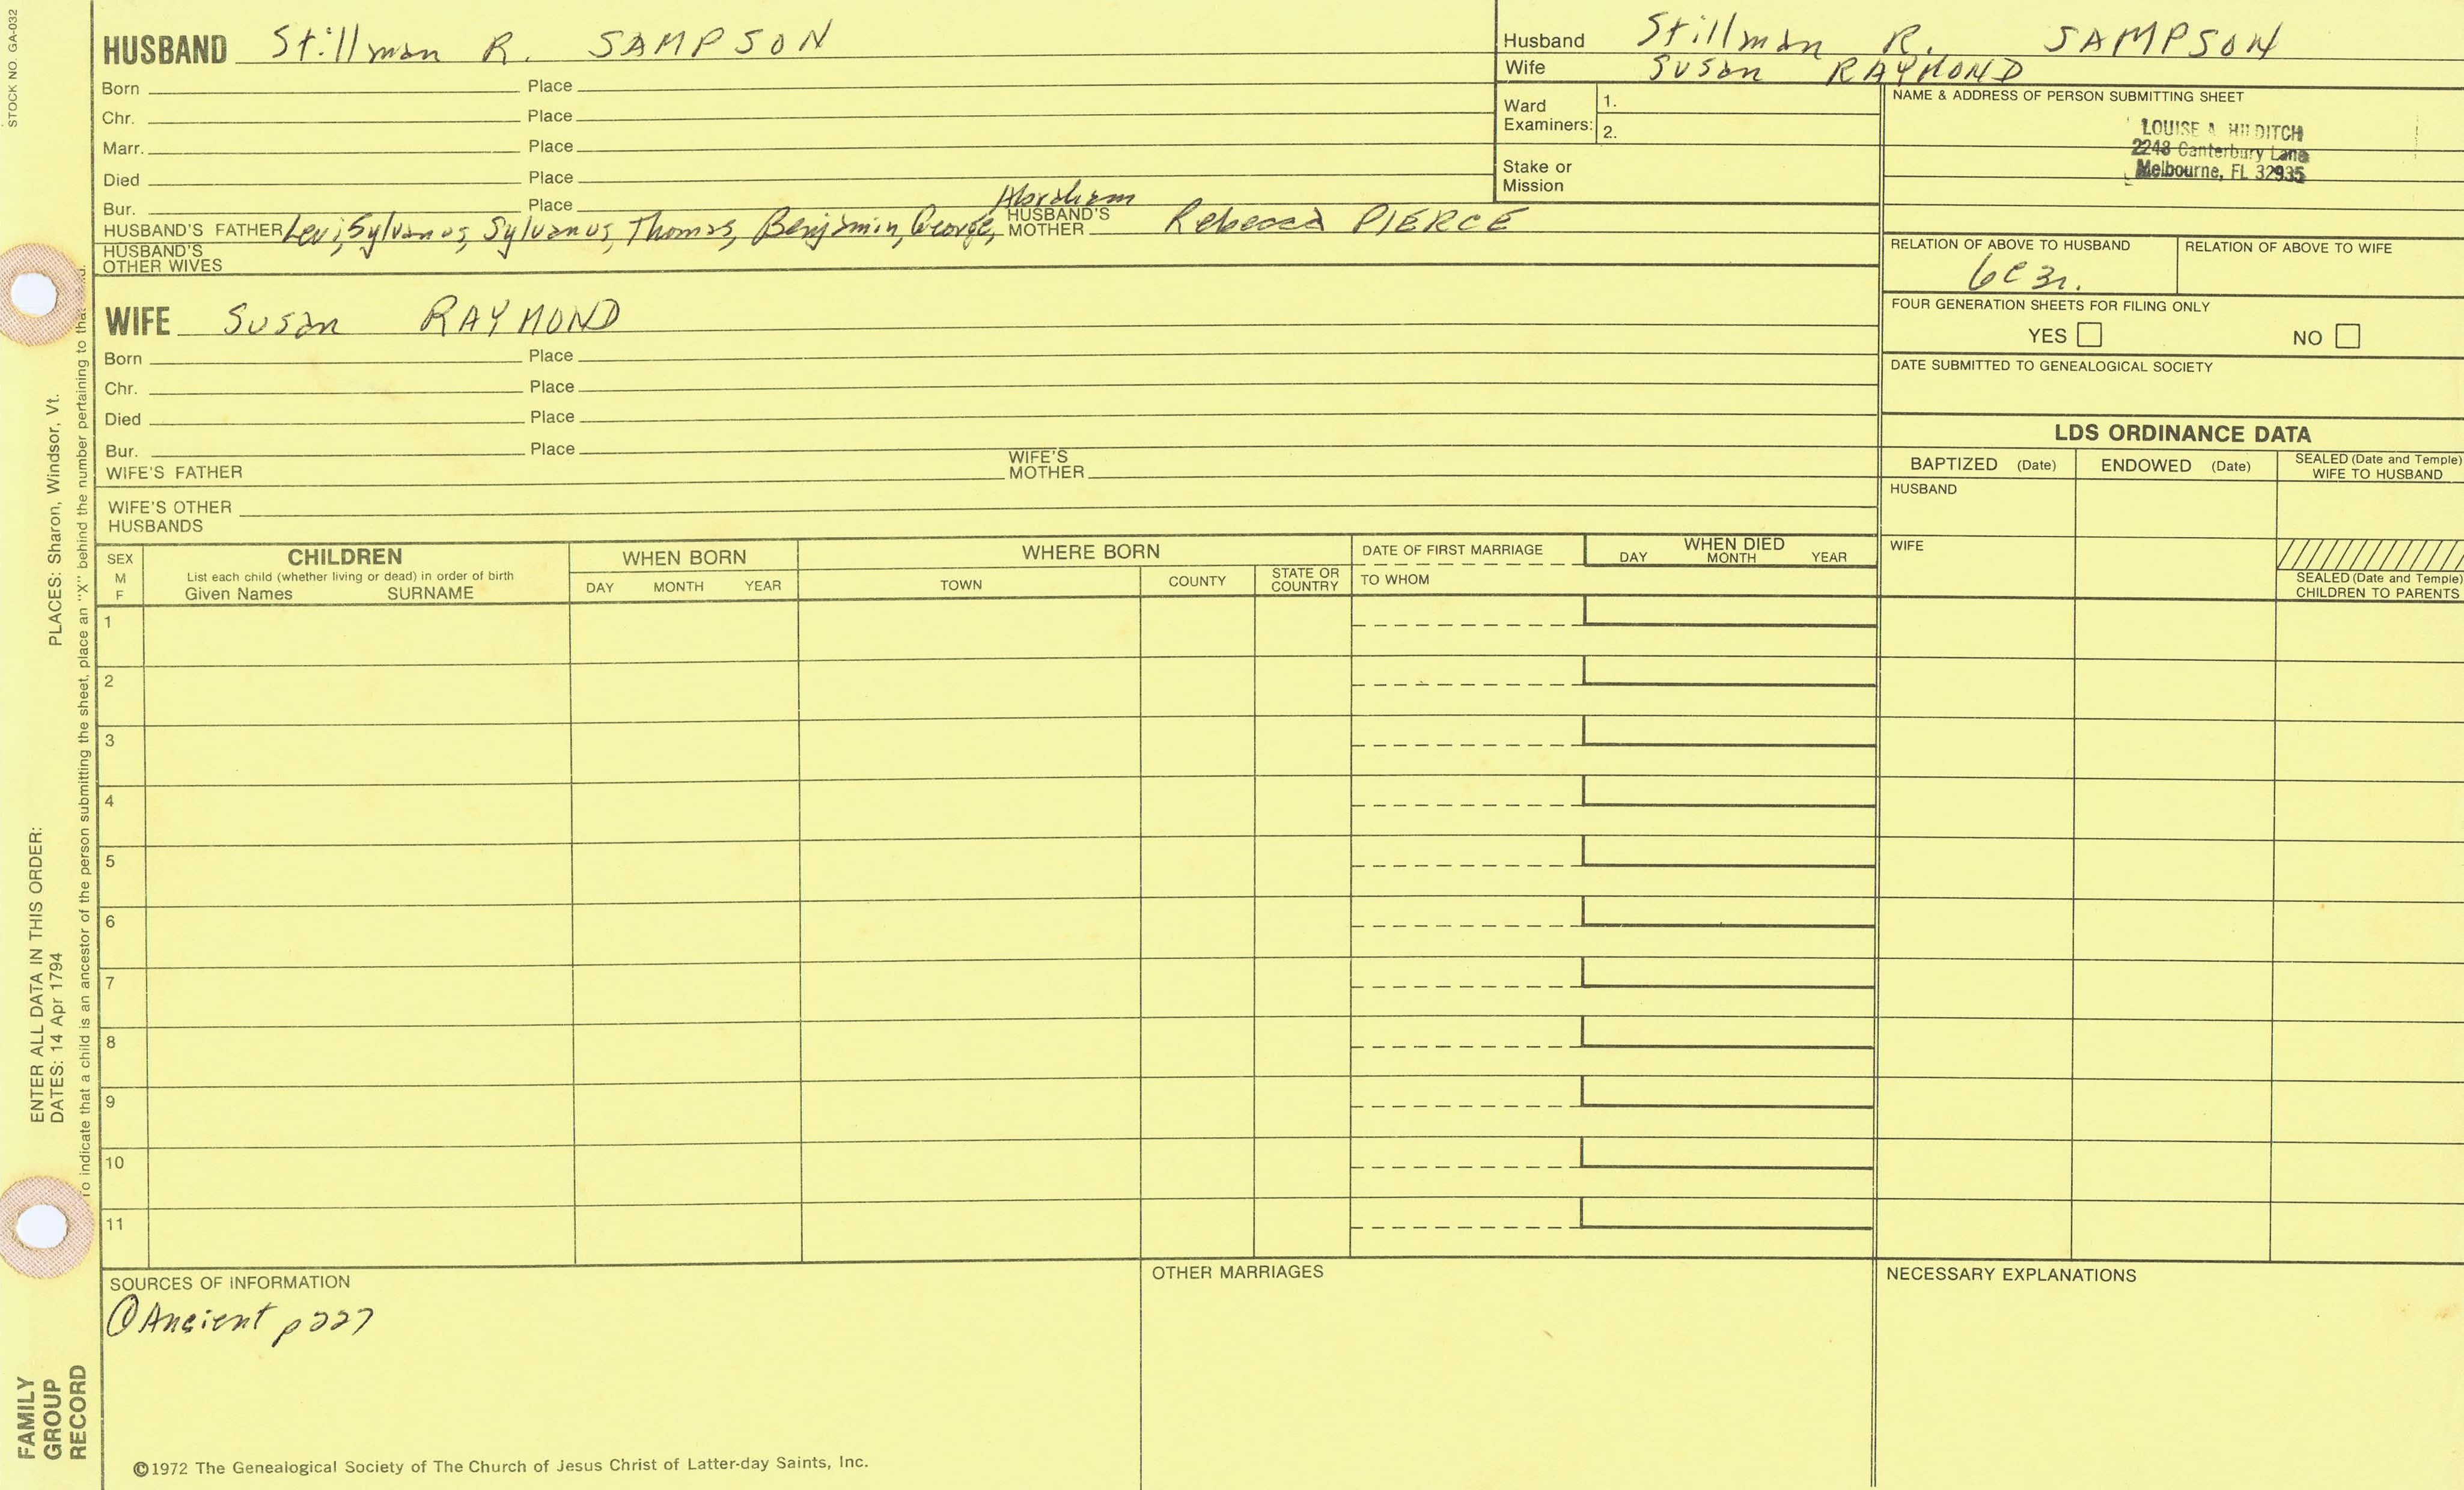 STOCK NO. GA-032
HUSBAND Stillman R. SAMPSON
Born Place
Chr. Place
Marr. Place
Died Place
Bur. Place
Abraham
HUSBAND'S FATHER Levi, Sylvanus, Sylvanus, Thomas, Benjamin, George, HUSBAND'S MOTHER Rebecca PIERCE
HUSBAND'S OTHER WIVES
WIFE Susan RAYMOND
Born Place
Chr. Place
Died Place
Bur. Place
WIFE'S FATHER WIFE'S MOTHER
WIFE'S OTHER HUSBANDS
Husband Stillman R. SAMPSON
Wife Susan RAYMOND
Ward Examiners: 1.
2.
Stake or Mission
NAME & ADDRESS OF PERSON SUBMITTING SHEET
LOUISE A HILDITCH
2248 Canterbury Lane
Melbourne, FL 32935
RELATION OF ABOVE TO HUSBAND RELATION OF ABOVE TO WIFE
6C3r.
FOUR GENERATION SHEETS FOR FILING ONLY
YES NO
DATE SUBMITTED TO GENEALOGICAL SOCIETY
LDS ORDINANCE DATA
BAPTIZED (Date) ENDOWED (Date) SEALED (Date and Temple) WIFE TO HUSBAND
HUSBAND
WIFE
SEALED (Date and Temple) CHILDREN TO PARENTS
SEX M F CHILDREN WHEN BORN WHERE BORN DATE OF FIRST MARRIAGE WHEN DIED
List each child (whether living or dead) in order of birth
Given Names SURNAME DAY MONTH YEAR TOWN COUNTY STATE OR COUNTRY TO WHOM DAY MONTH YEAR
1
2
3
4
5
6
7
8
9
10
11
SOURCES OF INFORMATION OTHER MARRIAGES NECESSARY EXPLANATIONS
① Ancient p227
©1972 The Genealogical Society of The Church of Jesus Christ of Latter-day Saints, Inc.
FAMILY GROUP RECORD
ENTER ALL DATA IN THIS ORDER:
DATES: 14 Apr 1794 PLACES: Sharon, Windsor, Vt.
To indicate that a child is an ancestor of the person submitting the sheet, place an "X" behind the number pertaining to that